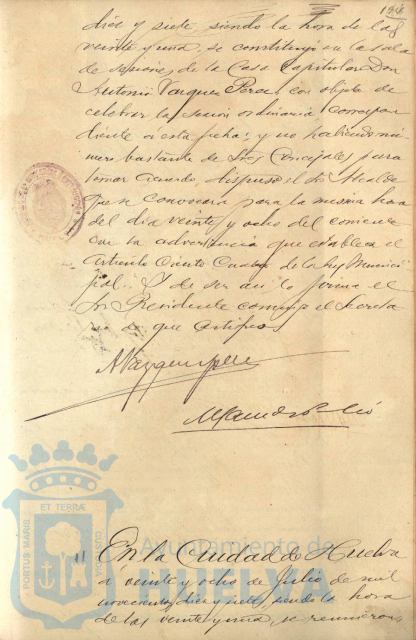 diez y siete siendo la hora de las
veinte y una, se constituyó en la sala
de sesiones de la Casa Capitular Don
Antonio Vazquez Perez con objeto de
celebrar la sesion ordinaria, correspon
diente a esta fecha; y no habiendo nú
mero bastante de Sres Concejales para
tomar acuerdo, dispuso el Sr Alcalde
que se convocara para la misma hora
del dia veinte y ocho del corriente
con la advertencia que establece el
artículo Ciento Cuatro de la ley Munici
pal. Y de ser así lo firma el
Sr Presidente conmigo el Secreta
rio de que certifico
A Vazquez Perez
En la Ciudad de Huelva
a veinte y ocho de Julio de mil
novecientos diez y siete, siendo la hora
de las veinte y una, se reunieron
Ayuntamiento de
HUELVA
PORTUS MARIS
ET TERRÆ